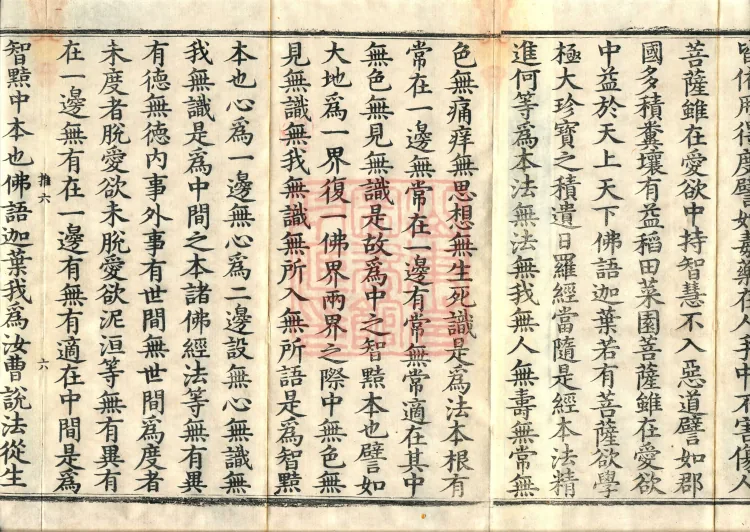 得度譬如毒藥在人手中不害傷人
菩薩雖在愛欲中持智慧不入惡道譬如郡
國多積糞壤有益稻田菜園菩薩雖在愛欲
中益於天上天下佛語迦葉若有菩薩欲學
極大珍寶之積遺日羅經當隨是經本法精
進何等爲本法無法無我無人無壽無常無
色無痛痒無思想無生死識是爲法本根有
常在一邊無常在一邊有常無常適在其中
無色無見無識是故爲中之智黠本也譬如
大地爲一界復一佛界兩界之際中無色無
見無識無我無識無所入無所語是爲智黠
本也心爲一邊無心爲二邊設無心無識無
我無識是爲中間之本諸佛經法等無有異
有德無德內事外事有世間無世間爲度者
未度者脫愛欲未脫愛欲泥洹等無有異有
在一邊無有在一邊有無有適在中間是爲
推六 六
智黠中本也佛語迦葉我爲汝曹說法從生